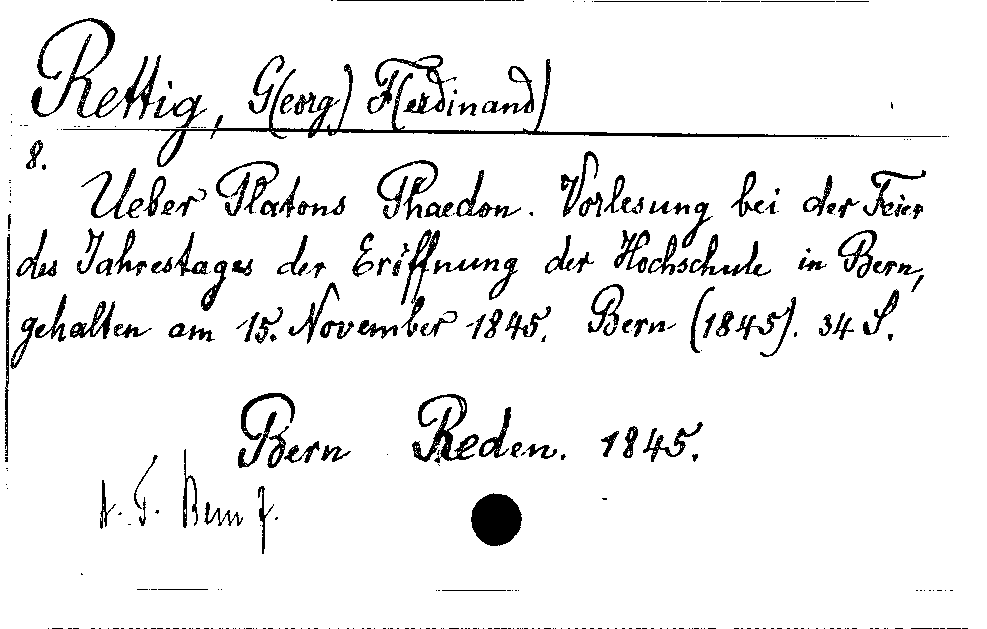 Rettig, G(eorg) F(erdinand)
8.
Ueber Platons Phaedon. Vorlesung bei der Feier
des Jahrestages der Eröffnung der Hochschule in Bern,
gehalten am 15. November 1845. Bern (1845). 34 S.
Bern Reden. 1845.
Bern